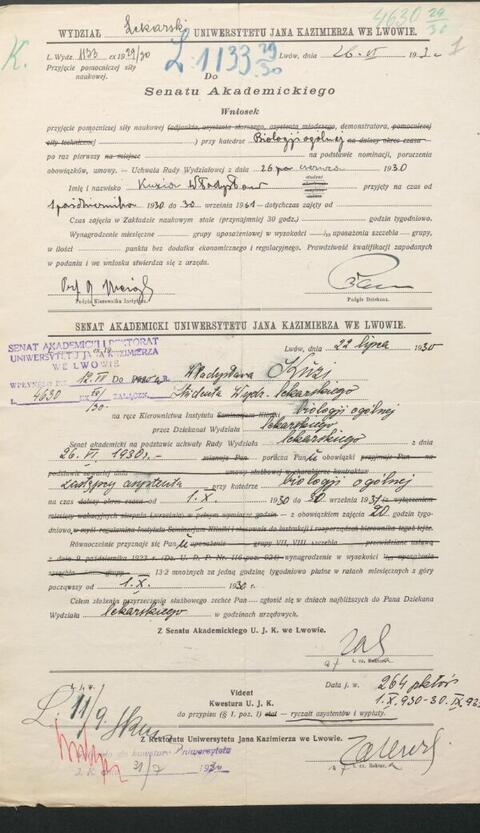 4630 29/30
WYDZIAŁ Lekarski UNIWERSYTETU JANA KAZIMIERZA WE LWOWIE.
K.
L. Wydz. 1133 ex 1929/30
L. 1133 29/30
Lwów, dnia 26. VI 193
1
Przyjęcie pomocniczej siły
naukowej.
Do
Senatu Akademickiego
Wniosek
przyjęcie pomocniczej siły naukowej (adjunkta, asystenta starszego, asystenta młodszego, demonstratora, pomocniczej
siły technicznej) przy katedrze Biologji ogólnej na dalszy okres czasu
po raz pierwszy na miejsce na podstawie nominacji, poruczenia
obowiązków, umowy. — Uchwała Rady Wydziałowej z dnia 26 czerwca 1930
student
Imię i nazwisko Kuzia Władysław przyjęty na czas od
1 października 1930 do 30 września 1931 dotychczas zajęty od
Czas zajęcia w Zakładzie naukowym stale (przynajmniej 30 godz.) godzin tygodniowo.
Wynagrodzenie miesięczne grupy uposażeniowej w wysokości uposażenia szczebla grupy,
w ilości punkta bez dodatku ekonomicznego i regulacyjnego. Prawdziwość kwalifikacji zapodanych
w podaniu i we wniosku stwierdza się z urzędu.
Prof.
Podpis Kierownika Instytutu.
Podpis Dziekana.
SENAT AKADEMICKI UNIWERSYTETU JANA KAZIMIERZA WE LWOWIE.
Lwów, dnia 22 lipca 1930
SENAT AKADEMICKI I REKTORAT
UNIWERSYTETU JANA KAZIMIERZA
WE LWOWIE
WPŁYNĘŁO 12. VII
L. 4630 ZAŁĄCZN.
Do Pana
Władysława Kuzi
studenta Wydz. lekarskiego
na ręce Kierownictwa Instytutu Seminarjum Kliniki biologji ogólnej
przez Dziekanat Wydziału lekarskiego
Senat akademicki na podstawie uchwały Rady Wydziału lekarskiego z dnia
26. VI 1930 r. mianuje Pan porucza Panu obowiązki przyjmuje Pan na
podstawie umowy służbowej w charakterze kontraktow
zastępcy asystenta przy katedrze biologji ogólnej
na czas dalszy okres czasu od 1. X. 1930 do 30 września 1931 z wyłączeniem
miesięcy wakacyjnych w pełnym wymiarze godzin — w czasie zajęcia 20 godzin tygo-
dniowo, w myśl regulaminu Instytutu Seminarjum Kliniki i stosownie do instrukcji i rozporządzeń kierownika tegoż tejże.
Równocześnie przyznaje się Panu uposażenie grupy VII, VIII szczebla przewidziane ustawą
z dnia 9. października 1923 r. (Dz. U. R. P. Nr. 116 poz. 924) wynagrodzenie w wysokości
szczebla grupy 13·2 mnożnych za jedną godzinę tygodniowo płatne w ratach miesięcznych z góry
począwszy od 1. X. 1930 r.
Celem złożenia przyrzeczenia służbowego zechce Pan zgłosić się w dniach najbliższych do Pana Dziekana
Wydziału lekarskiego w godzinach urzędowych.
Z Senatu Akademickiego U. J. K. we Lwowie.
t. cz. Rektor.
Data j. w.
264 pktów
1.X.930-30.IX.931
Videat
Kwestura U. J. K.
do przypisu (§ 1. poz. 1) etat — ryczałt asystentów i wypłaty.
L. 11/9.
Z Rektoratu Uniwersytetu Jana Kazimierza we Lwowie.
do kwestury Uniwersytetu
J. K. dn. 31/7 1930
t. cz. Rektor.